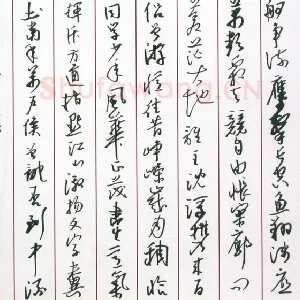 舸争流鹰擊长空鱼翔浅底
万类霜天競自由怅寥廓问
苍茫大地誰主沈浮携来百
侣曾游忆往昔峥嵘岁月稠恰
同学少年风華正茂书生意气
挥斥方遒指點江山激扬文字粪
土当年萬户侯曾記否到中流
Shufawang.CN